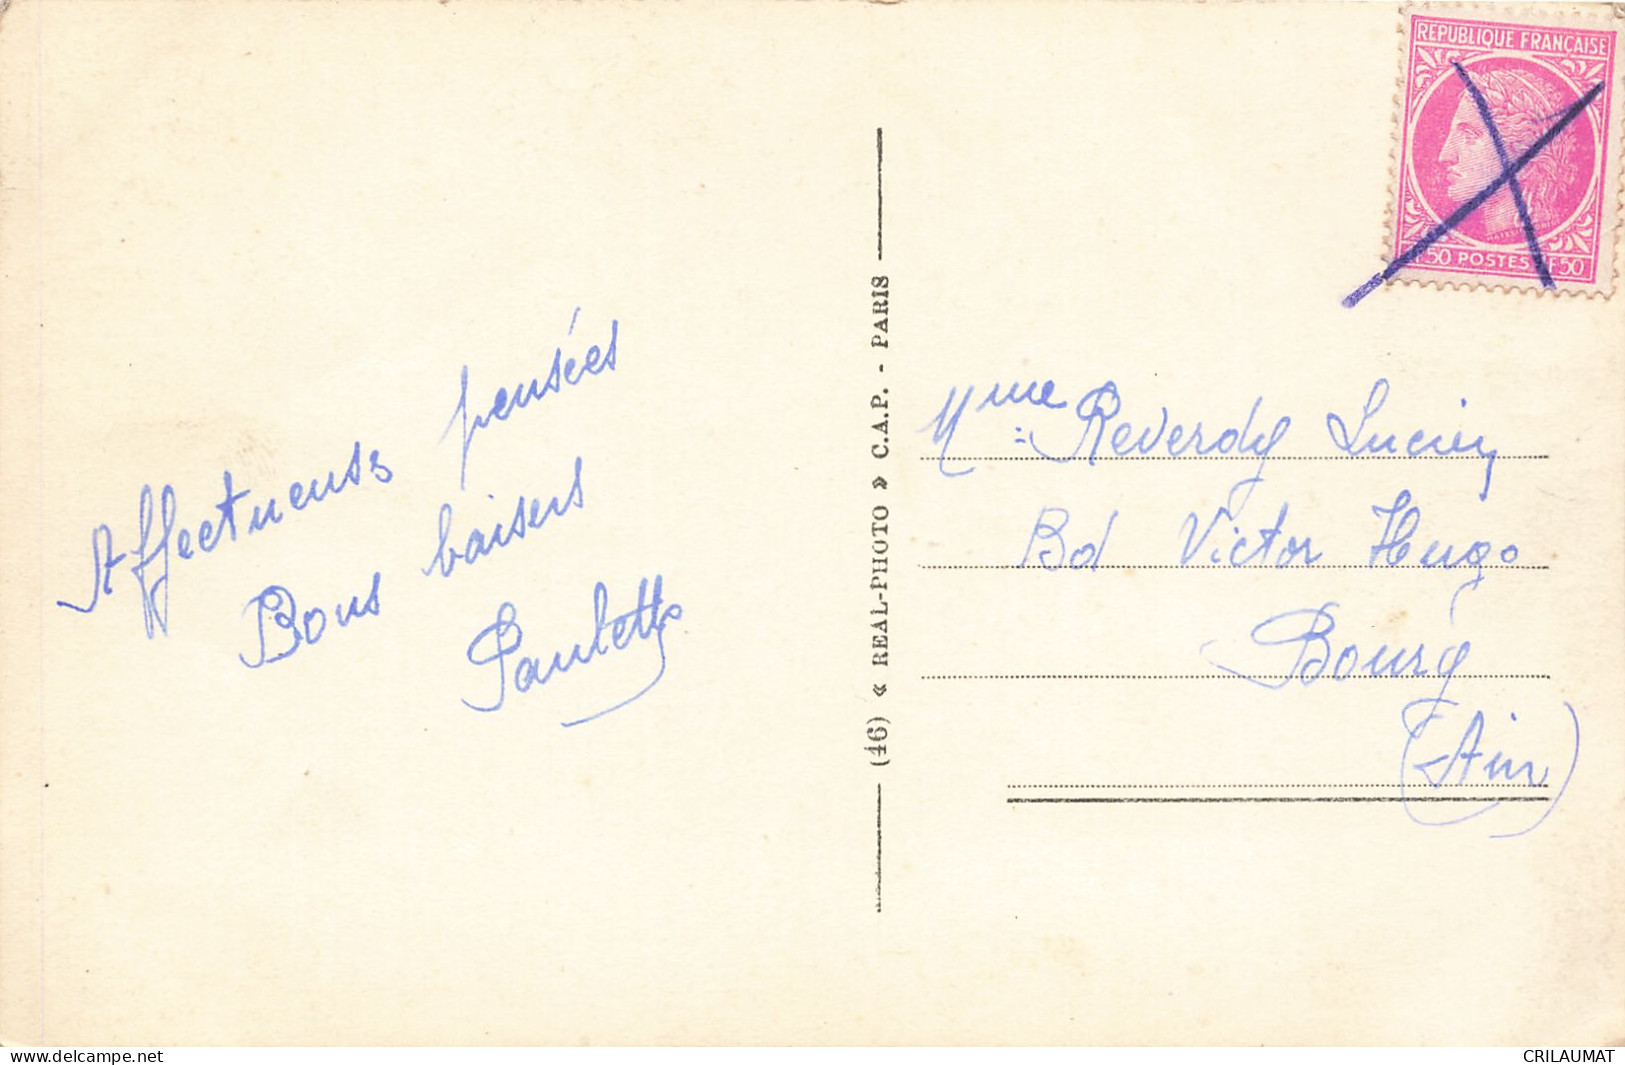 Affectueuses pensées
Bons baisers
Paulette
(46) « REAL-PHOTO » C.A.P. - PARIS
REPUBLIQUE FRANÇAISE
1F50 POSTES 1F50
Mme Reverdy Lucien
Bd Victor Hugo
Bourg
(Ain)
www.delcampe.net
CRILAUMAT